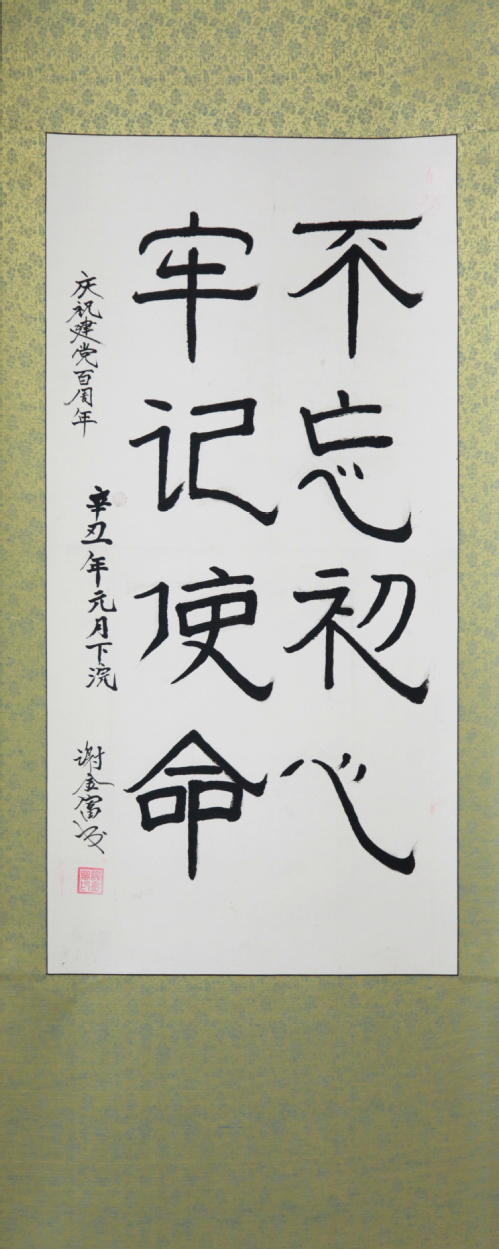 不忘初心
牢记使命
庆祝建党百周年
辛丑年元月下浣
谢金富